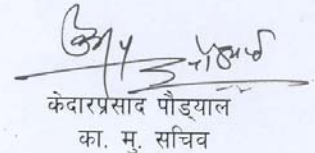 केदारप्रसाद पौड्याल
का. मु. सचिव